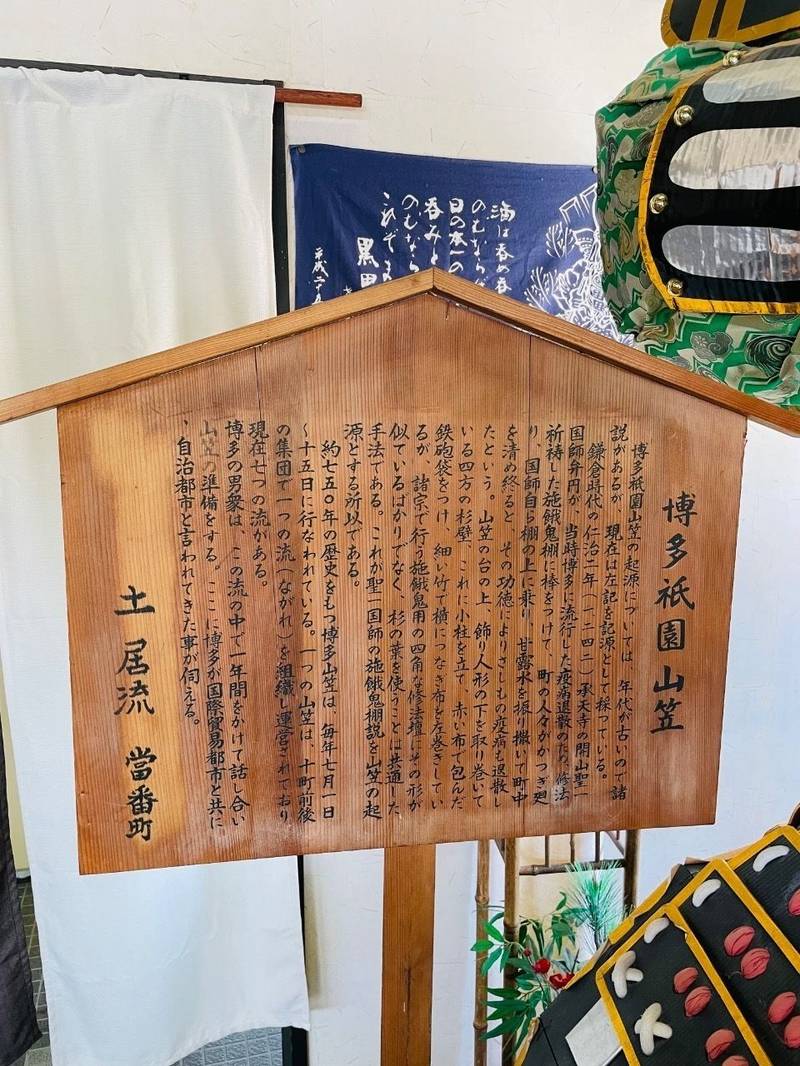 博多祇園山笠
博多祇園山笠の起源については、年代が古いので諸
説があるが、現在は左記を記源として採っている。
鎌倉時代の仁治二年(一二四二)承天寺の開山聖一
国師弁円が、当時博多に流行した疫病退散のため、修法
祈祷した施餓鬼棚に棒をつけて、町の人々がかつぎ廻
り、国師自ら棚の上に乗り、甘露水を振り撒いて町中
を清め終ると、その功徳によりさしもの疫病も退散し
たという。山笠の台の上、飾り人形の下を取り巻いて
いる四方の杉壁、これに小柱を立て、赤い布で包んだ
鉄砲袋をつけ、細い竹で横につなぎ布を左巻きしてい
るが、諸宗で行う施餓鬼用の四角な修法壇にその形が
似ているばかりでなく、杉の葉を使うことは共通した
手法である。これが聖一国師の施餓鬼棚説を山笠の起
源とする所以である。
約七五〇年の歴史をもつ博多山笠は、毎年七月一日
〜十五日に行なわれている。一つの山笠は、十町前後
の集団で一つの流(ながれ)を組織し運営されており
現在七つの流がある。
博多の男衆は、この流の中で一年間をかけて話し合い
山笠の準備をする。ここに博多が国際貿易都市と共に
、自治都市と言われてきた事が伺える。
土居流 當番町
酒は呑め呑
のむならば
日の本一の
呑みと
のむなら
これぞま
黒田
平成二十五